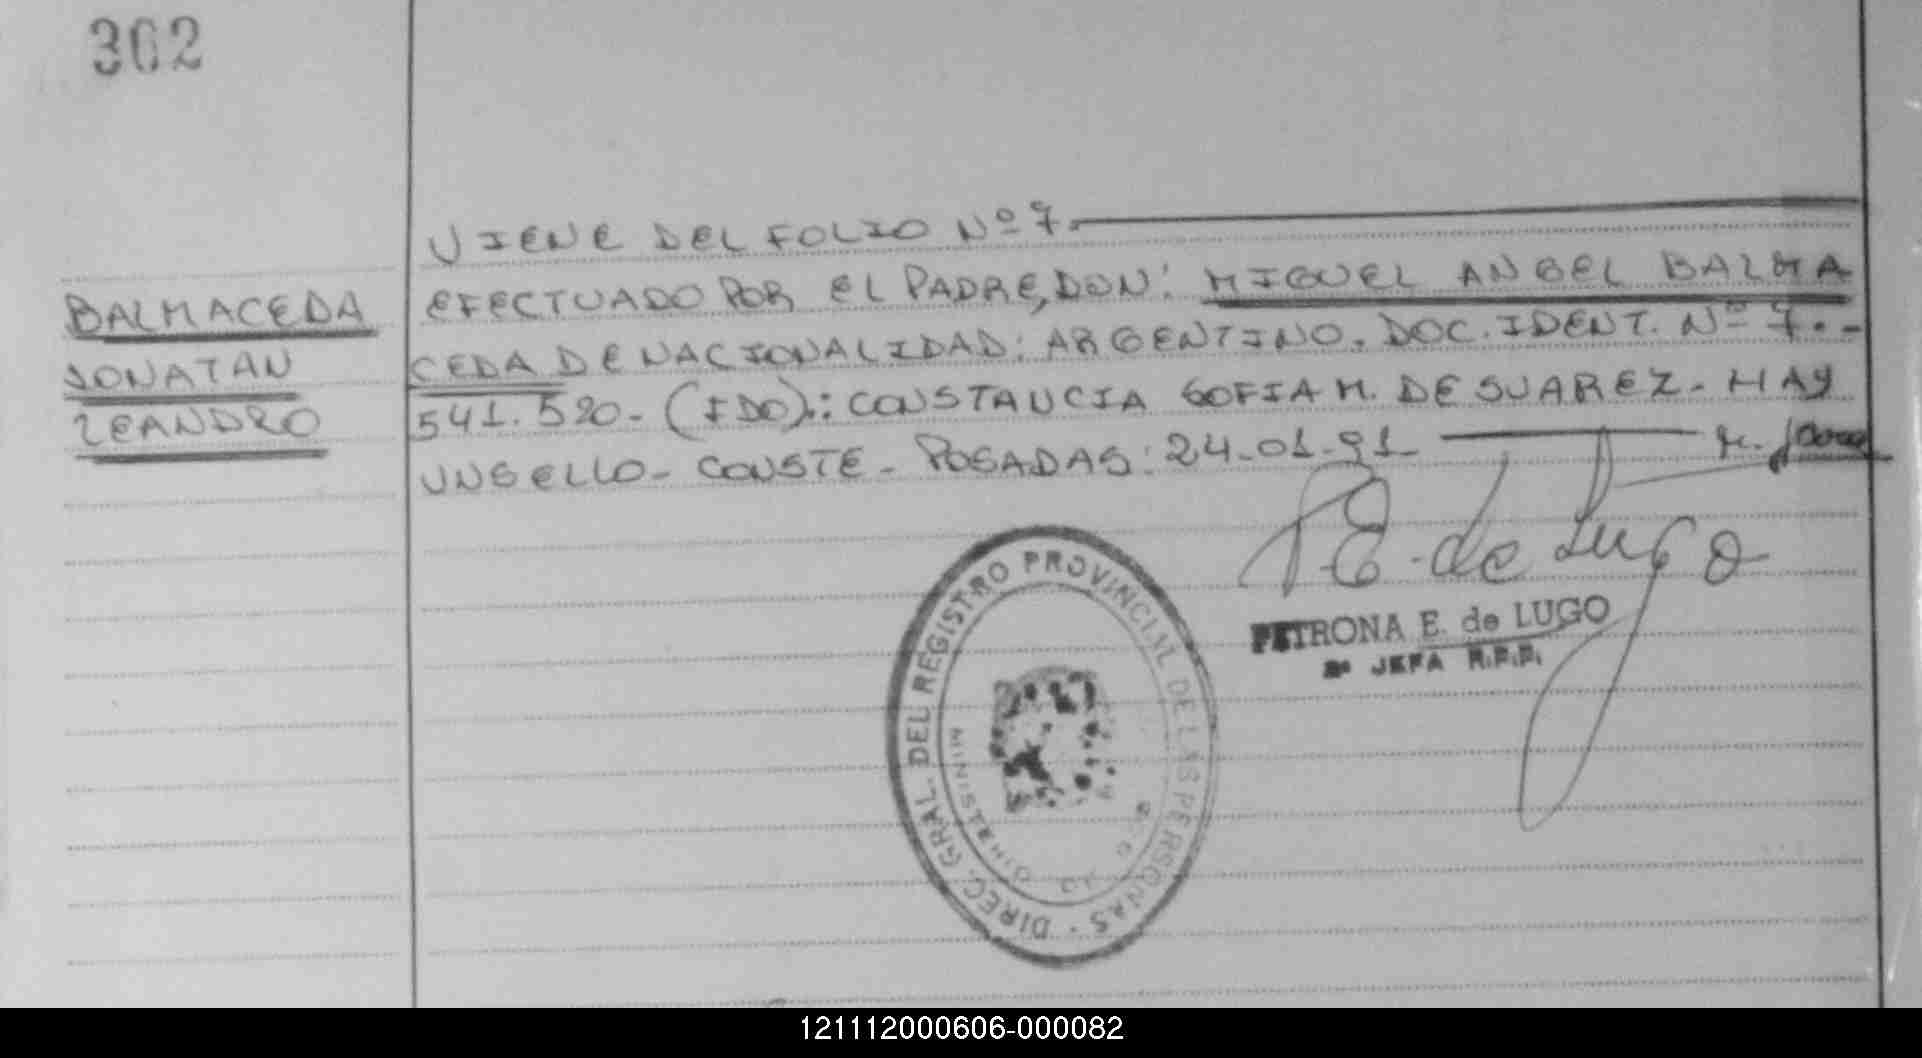 302
VIENE DEL FOLIO Nº 7.
EFECTUADO POR EL PADRE, DON: MIGUEL ANGEL BALMA
CEDA DE NACIONALIDAD: ARGENTINO. DOC. IDENT. Nº 7.-
541.520- (FDO).: CONSTANCIA SOFIA M. DE SUAREZ- HAY
UN SELLO- CONSTE- POSADAS: 24-01-91-
BALMACEDA
JONATAN
LEANDRO
P E. de Lugo
PETRONA E. de LUGO
2ª JEFA R.P.P.
DIREC. GRAL. DEL REGISTRO PROVINCIAL DE LAS PERSONAS
MINISTERIO DE GOB
121112000606-000082